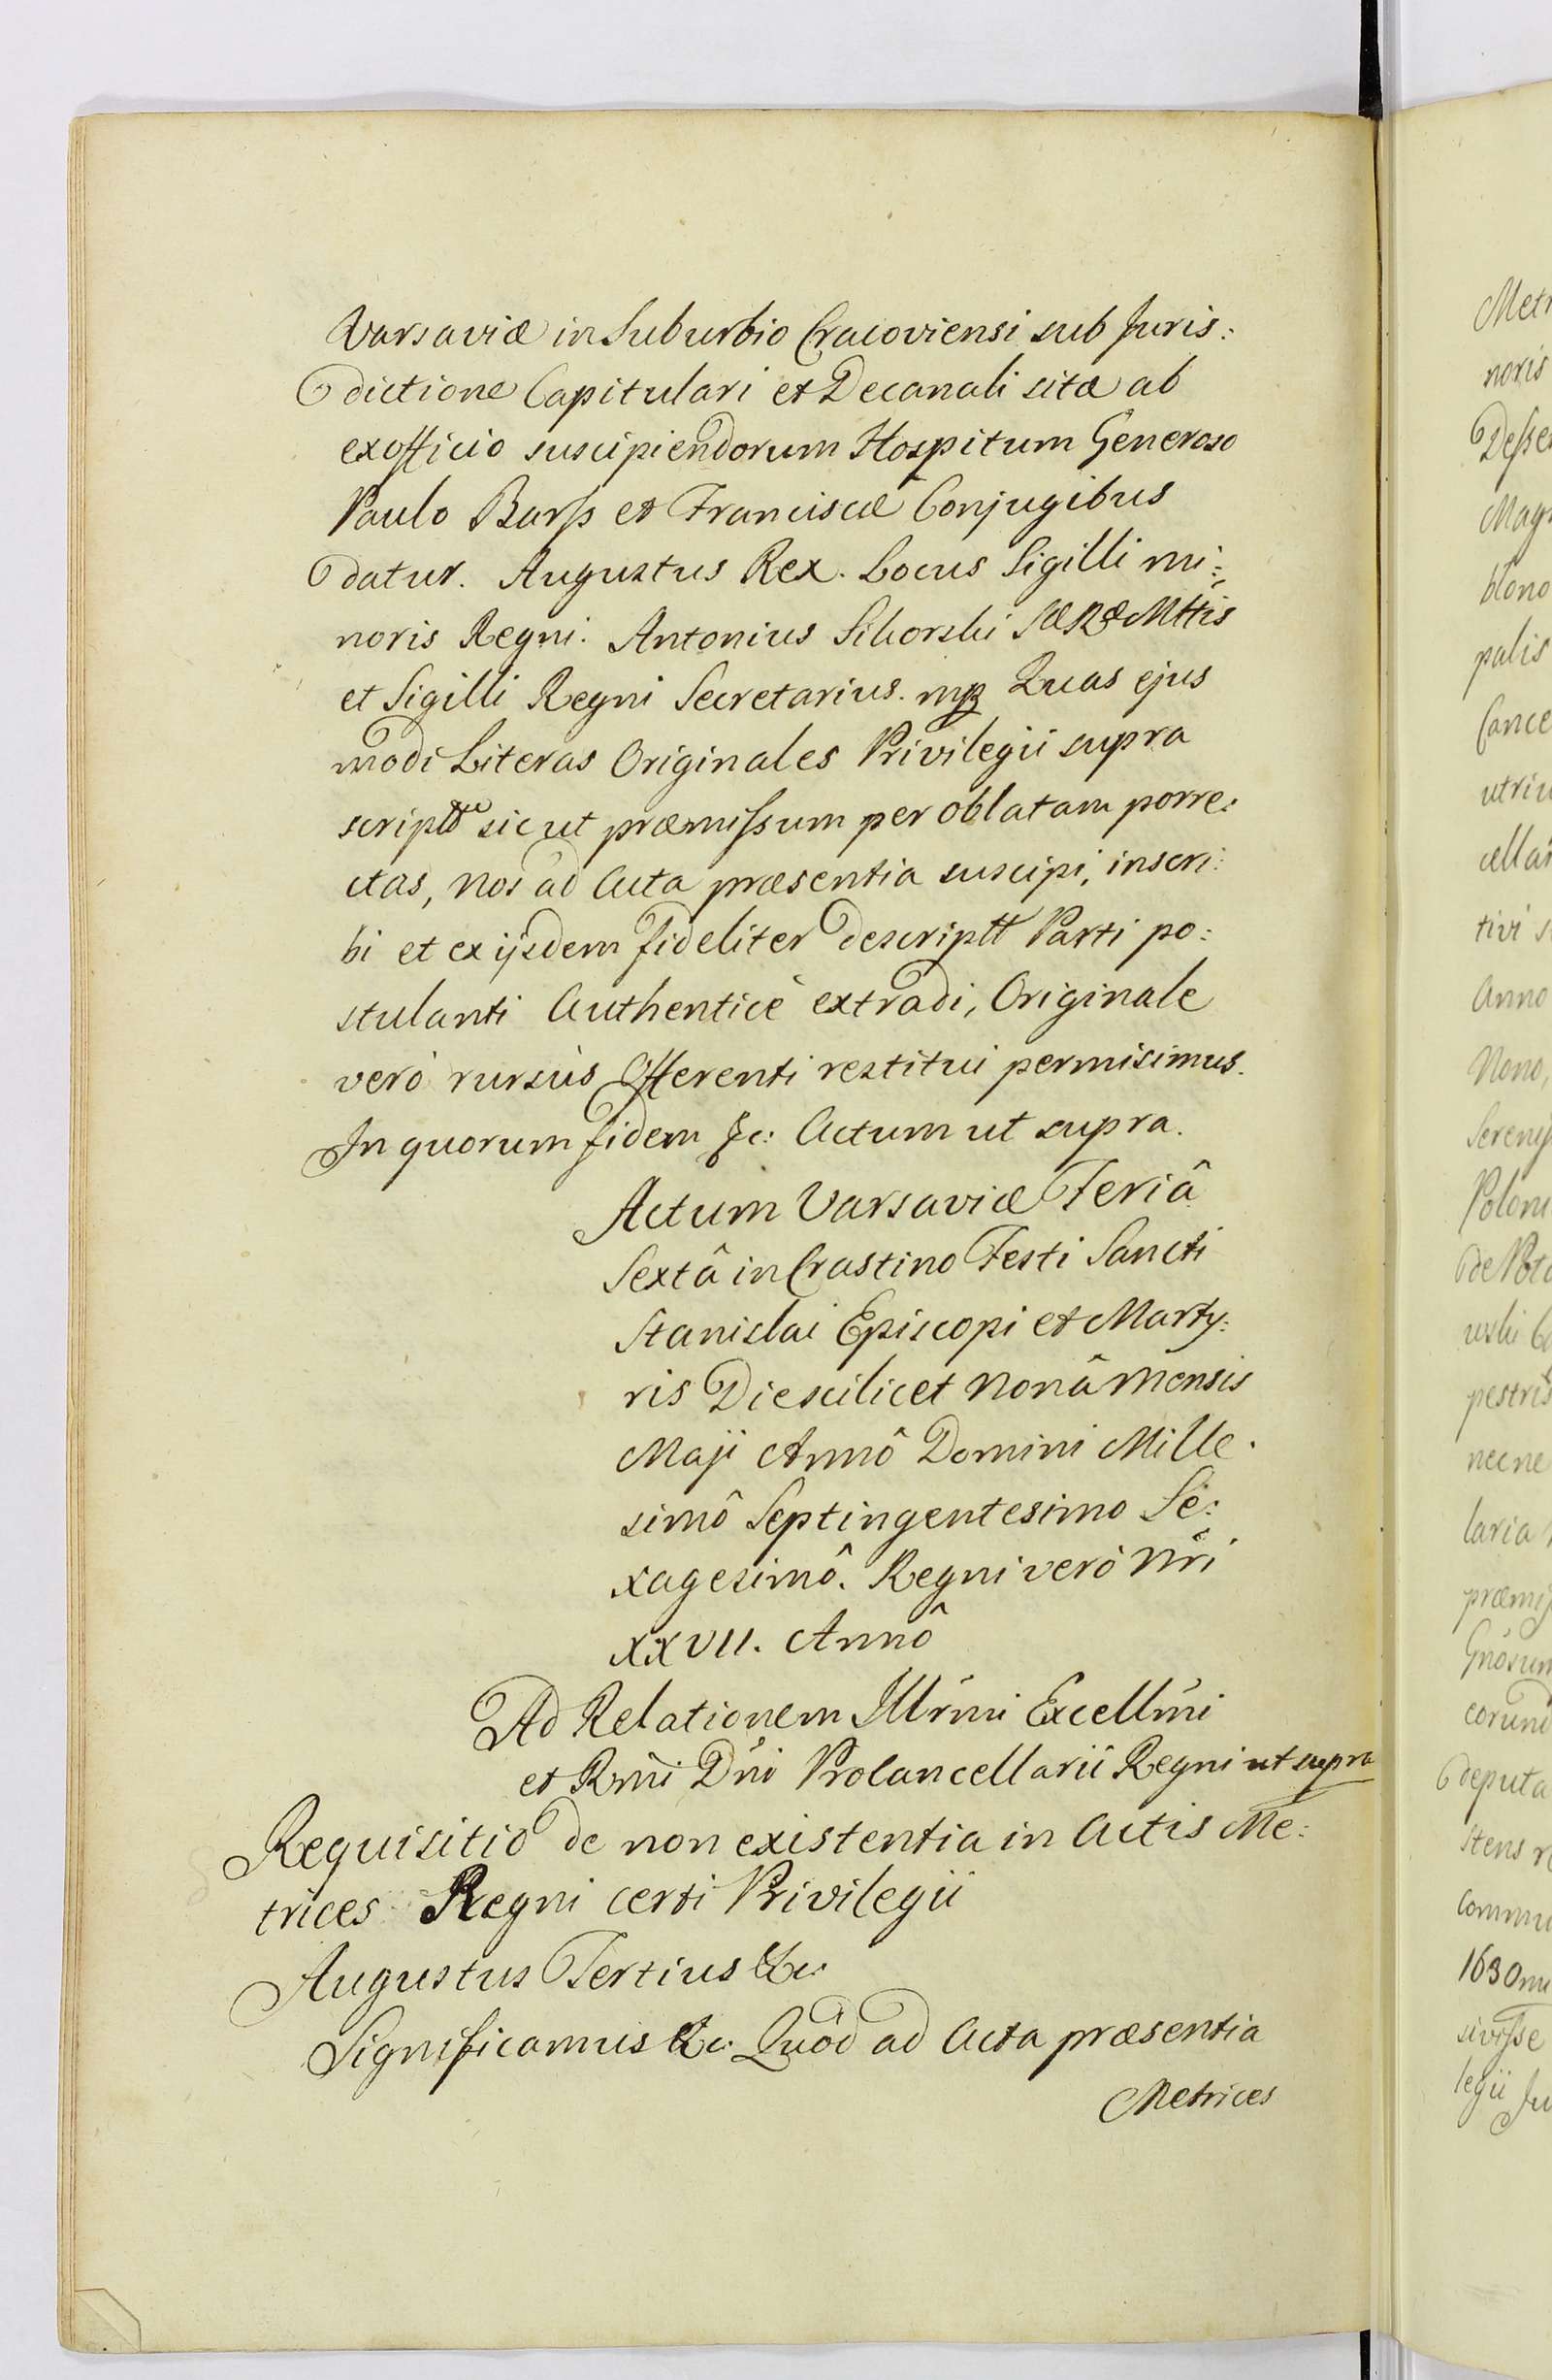 Varsaviæ in Suburbio Cracoviensi sub Juris:
dictione Capitulari et Decanali sitæ ab
exofficio suscipiendorum Hospitum Generoso
Paulo Barſs et Franciscæ Conjugibus
datur. Augustus Rex. Locus Sigilli mi:
noris Regni. Antonius Sikorski SæRæMttis
et Sigilli Regni Secretarius. mp Quas ejus
modi Literas Originales Privilegii supra
scriptti sicut præmiſsum per oblatam porre:
ctas, nos ad Acta præsentia suscipi, inscri:
bi et ex ijsdem fideliter descriptt Parti po:
stulanti Authenticè extradi, Originale
verò rursùs Offerenti restitui permisimus.
In quorum fidem &c: Actum ut supra.
Actum Varsaviæ Feriâ
Sextâ in Crastino Festi Sancti
Stanislai Episcopi et Marty:
ris Die scilicet nonâ mensis
Maji Annô Domini Mille.
simô Septingentesimo Se:
xagesimô. Regni verò Nrĩ
XXVII. Annô
Ad Relationem Illrmi Excellmi
et Rmi Dni Procancellarii Regni ut supra
Requisitio de non existentia in Actis Me:
trices Regni certi Privilegii
Augustus Tertius &c:
Significamus &c: Quôd ad Acta præsentia
Metrices
Metr
noris
Deſse
Mag
blono
palis
Cance
utriu
cella
tivi s
Anno
Nono,
Sereniſ
Polon
de Poto
pestris
necne
laria
præmiſ
Gnosum
corund
deputa
stens r
commu
1630
siviſse
legii Ju